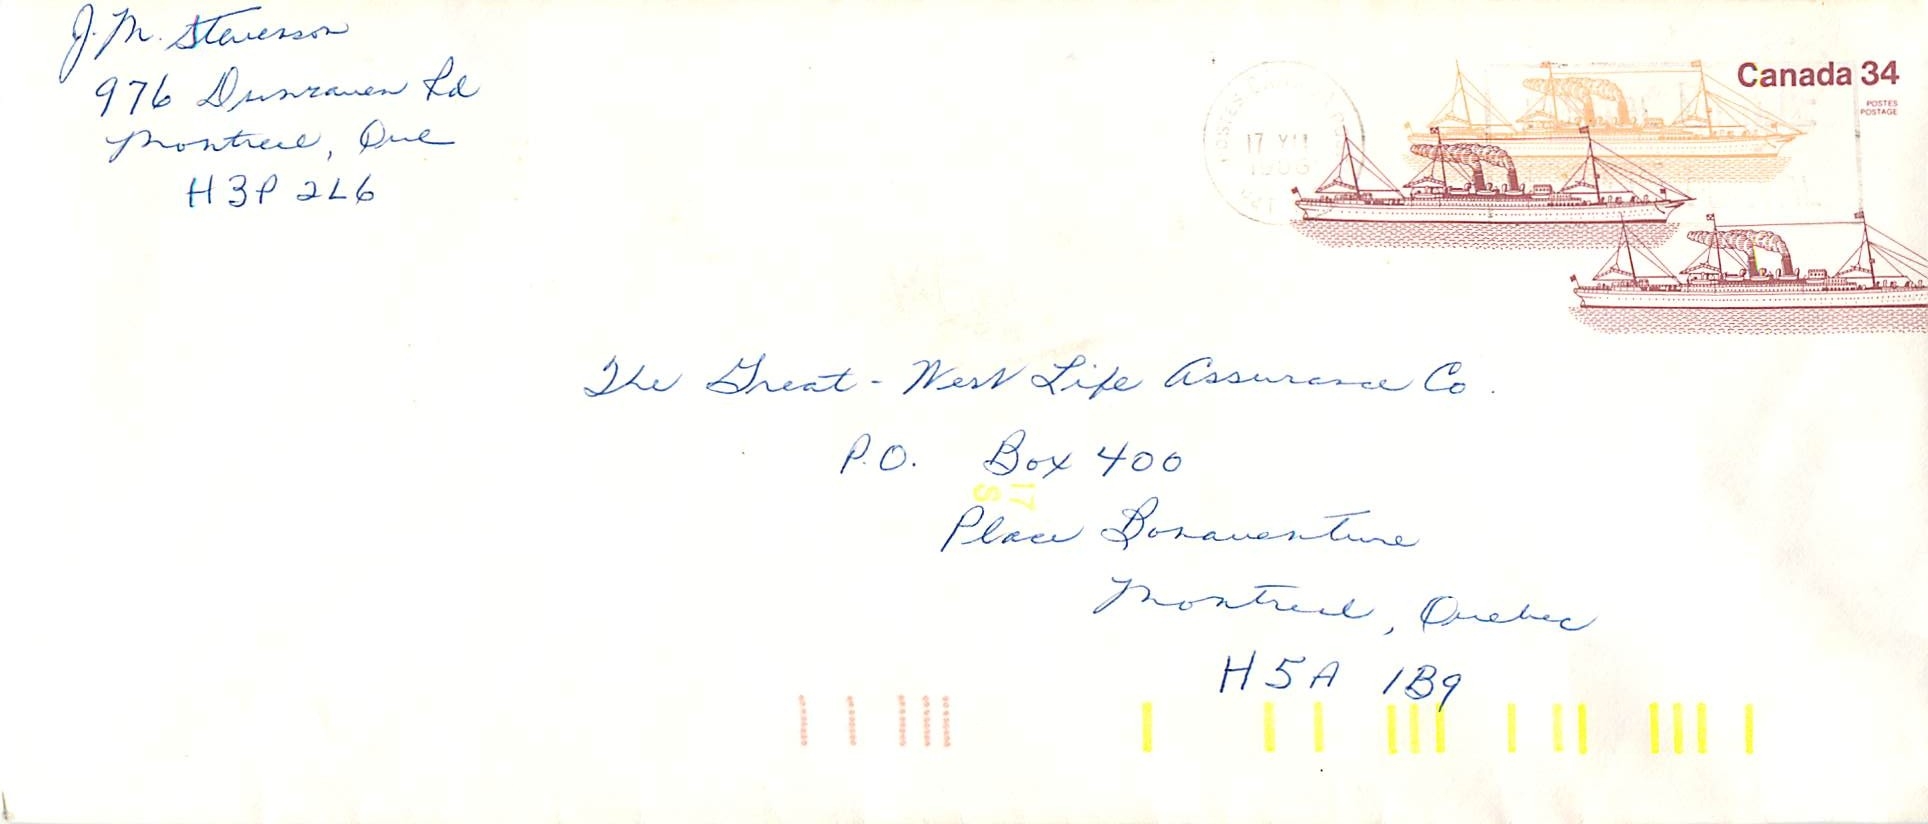 J. M. Stevenson
976 Dunraven Rd
Montreal, Que
H3P 2L6
Canada 34
POSTES
POSTAGE
17 VII
1986
The Great-West Life Assurance Co.
P.O. Box 400
17
S
Place Bonaventure
Montreal, Quebec
H5A 1B9